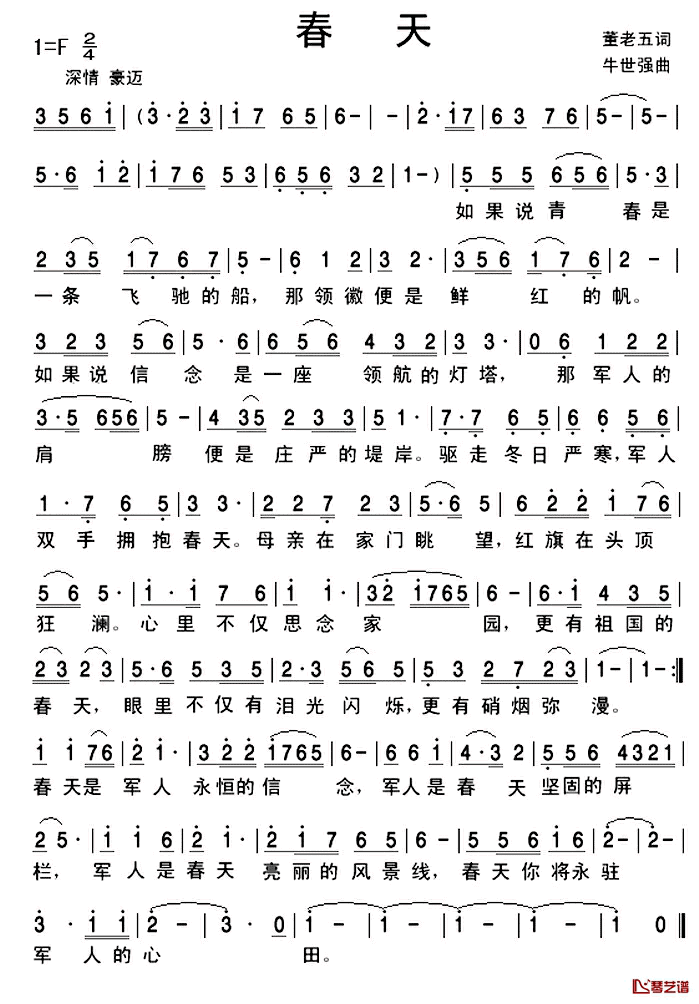 春 天
1=F 2/4
董老五词
牛世强曲
深情 豪迈
3 5 6 1 | ( 3· 2 3 | 1 7 6 5 | 6 - | - | 2· 1 7 | 6 3 7 6 | 5 - | 5 - |
5· 6 1 2 | 1 7 6 5 3 | 6 5 6 3 2 | 1 - ) | 5 5 5 6 5 6 | 5· 3 |
如果说青 春是
2 3 5 1 7 6 7 | 5 - | 6 1 2 | 3 2 3· | 3 5 6 6 1 7 6 | 2 - |
一条 飞 驰的船，那领徽便是 鲜 红 的帆。
3 2 3 5 6 | 5· 6 | 6 1 6 4 3 2 | 3 3· | 0 6 1 2 |
如果说信 念 是一座 领航的灯塔， 那军人的
3· 5 6 5 6 | 5 - | 4 3 5 2 3 3 | 5 1· | 7· 7 6 5 | 6 6 5 6 |
肩 膀 便是庄严的堤岸。驱走冬日严寒，军人
1· 7 6 5 | 3 3· | 2 2 7 2 2 3 | 5· 6 5 | 6 2 2 1 7 6 |
双手拥抱春天。母亲在家门眺 望，红旗在头顶
5 6 5· | 1· 1 7 6 | 1 1 | 3 2 1 7 6 5 | 6 - | 6· 1 4 3 5 |
狂 澜。心里不仅思念家 园，更有祖国的
2 3 2 3 | 5· 6 5 3 5 | 2· 3 5 6 5 | 5 3 2 7 2 3 | 1 - | 1 - :||
春 天，眼里不仅有泪光闪 烁，更有硝烟弥 漫。
1 1 7 6 | 2 1· | 3 2 2 1 7 6 5 | 6 - | 6 6 1 | 4· 3 2 | 5 5 6 4 3 2 1 |
春天是 军人 永恒的信 念，军人是春 天坚固的屏
2 5· | 1 1 6 | 2 1· | 2 1 7 6 7 | 5 6 · | 5 5 5 6 1 6 | 2 - | 2 - |
栏， 军人是春天 亮丽的风景线，春天你将永驻
3 · 1 1 | 2 - | 3 · 0 | 1 - | 1 - | 1 - | 1 0 ||
军 人的心 田。
琴艺谱